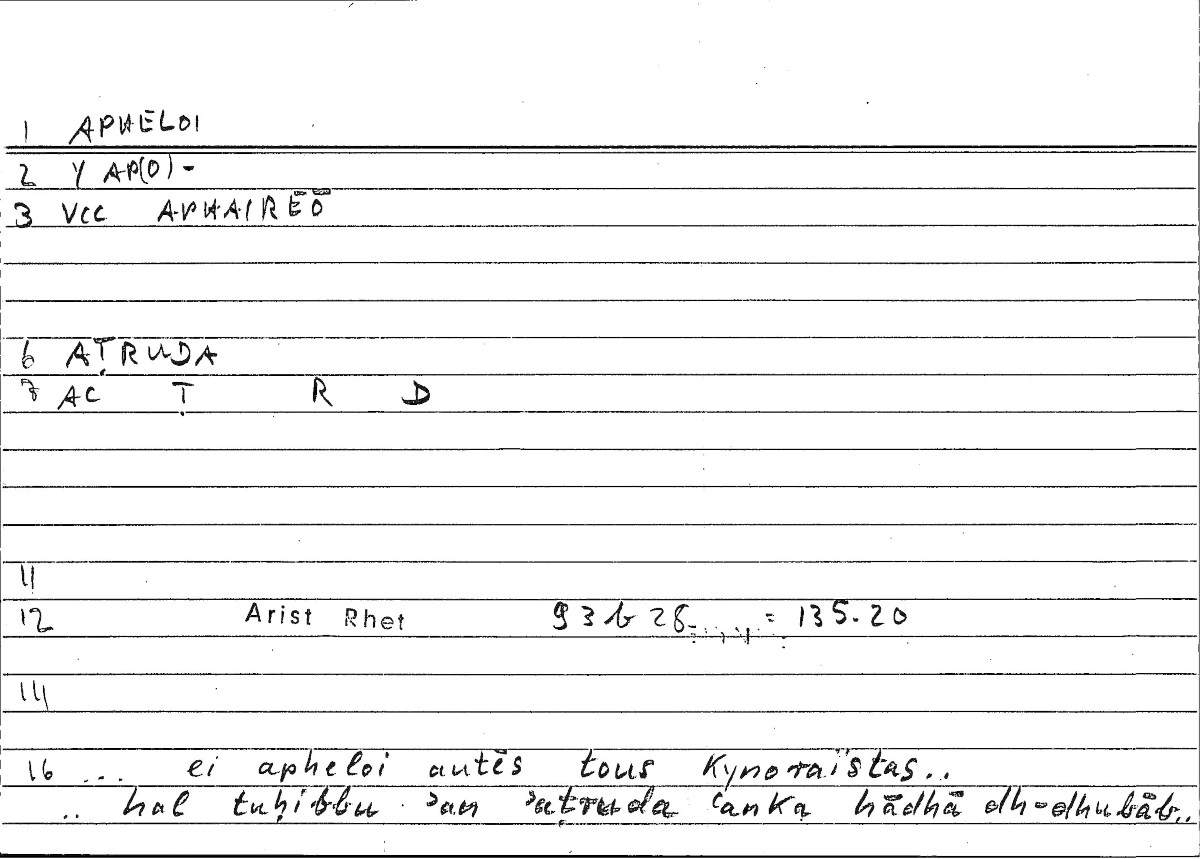 1 APHELOI
2 Y AP(O)-
3 VCC APHAIRĒŌ
6 AṬRUDA
7 AC Ṭ R D
11
12 Arist Rhet 93b28 = 135.20
14
16 ... ei apheloi autēs tous kynoraïstas..
.. hal tuḥibbu ʾan ʾaṭruda ʿanka hādhā dh-dhubāb..